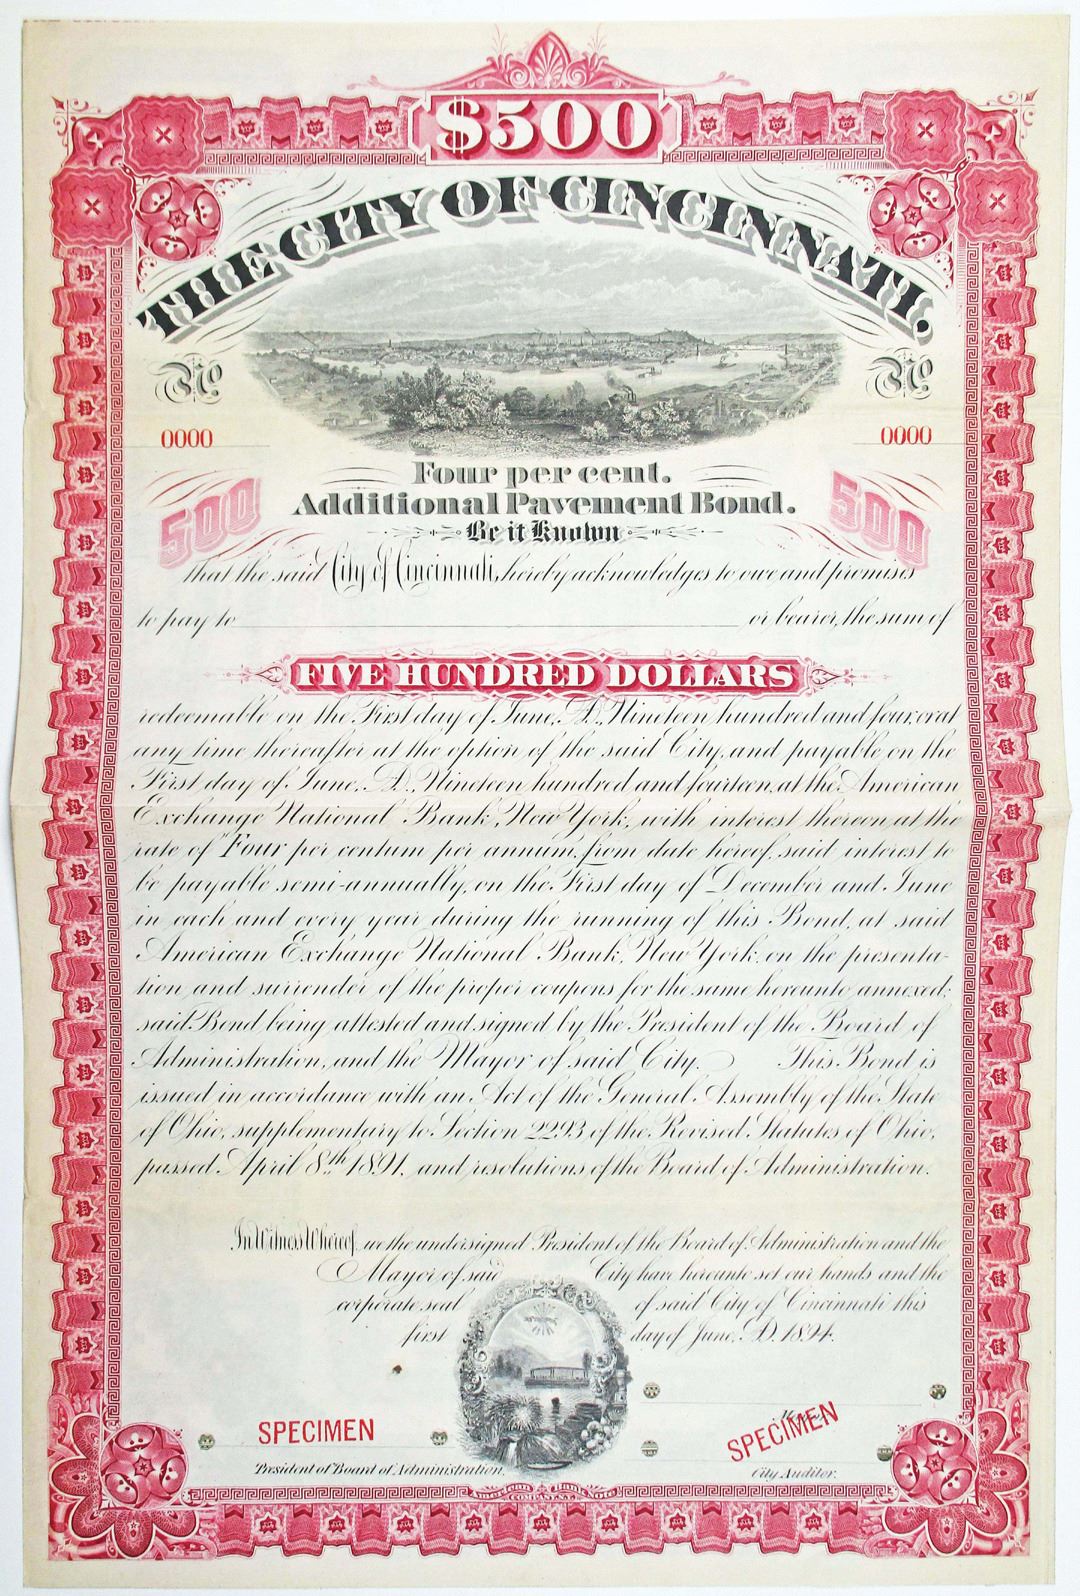 $500
THE CITY OF CINCINNATI,
No No
0000 0000
500 500
Four per cent.
Additional Pavement Bond.
Be it Known
that the said City of Cincinnati, hereby acknowledges to owe and promises
to pay to or bearer, the sum of
FIVE HUNDRED DOLLARS
redeemable on the First day of June, A.D. Nineteen hundred and four, or at
any time thereafter at the option of the said City, and payable on the
First day of June, A.D. Nineteen hundred and fourteen, at the American
Exchange National Bank, New York, with interest thereon at the
rate of Four per centum per annum, from date hereof, said interest to
be payable semi-annually, on the First day of December and June
in each and every year during the running of this Bond, at said
American Exchange National Bank, New York, on the presenta-
tion and surrender of the proper coupons for the same hereunto annexed;
said Bond being attested and signed by the President of the Board of
Administration, and the Mayor of said City. This Bond is
issued in accordance with an Act of the General Assembly of the State
of Ohio, supplementary to Section 2293 of the Revised Statutes of Ohio,
passed April 8th 1891, and resolutions of the Board of Administration.
In Witness Whereof we the undersigned President of the Board of Administration and the
Mayor of said City have hereunto set our hands and the
corporate seal of said City of Cincinnati this
first day of June, A.D. 1894.
Mayor.
SPECIMEN SPECIMEN
President of Board of Administration. City Auditor.
American Bank Note
COMPANY